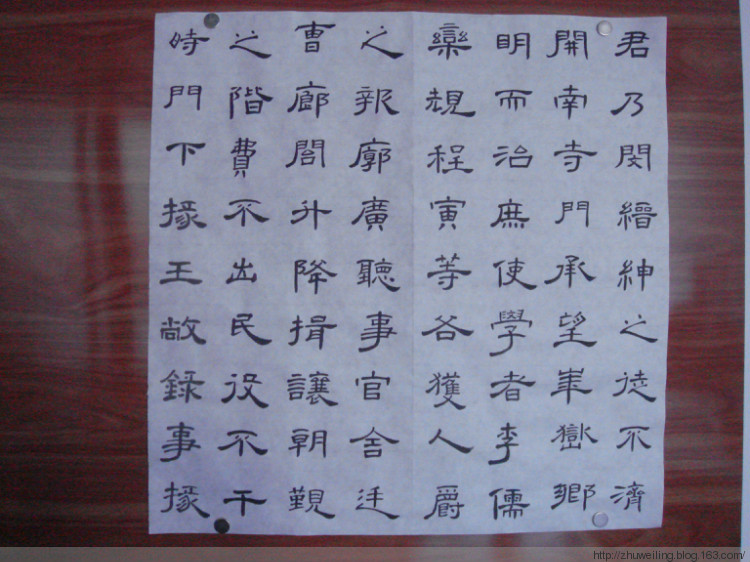 君乃閔縉紳之徒不濟
開南寺門承望華嶽鄉
明而治庶使學者李儒
欒規程寅等各獲人爵
之報廓廣聽事官舍廷
曹廊閣升降揖讓朝覲
之階費不出民役不干
時門下掾王敞錄事掾
http://zhuweiling.blog.163.com/